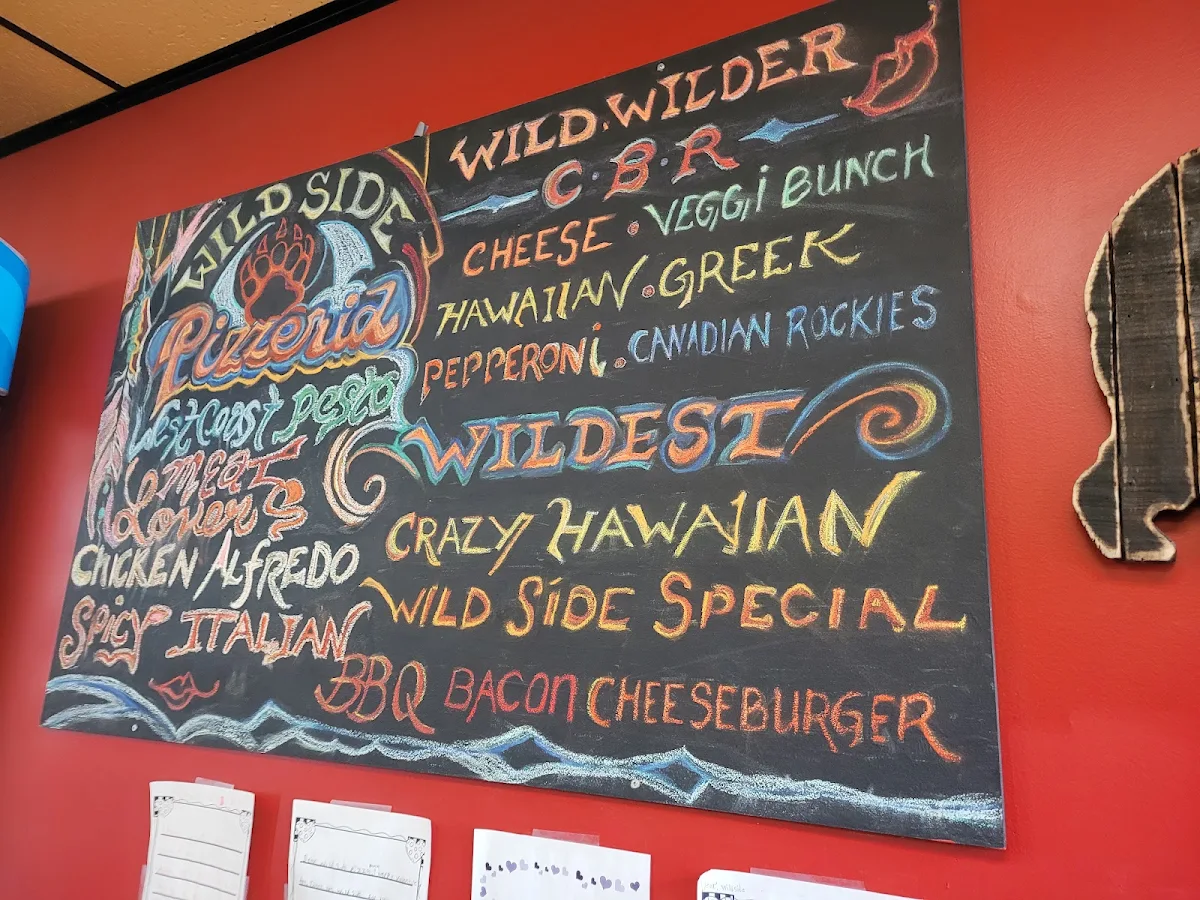 WILD SIDE
Pizzeria
West Coast Pesto
Meat
Lovers
CHICKEN ALFREDO
SPICY ITALIAN
WILD·WILDER
C·B·R
CHEESE · VEGGi BUNCH
HAWAIIAN · GREEK
PEPPERONi · CANADIAN ROCKIES
WILDEST
CRAZY HAWAIIAN
WILD SiDE SPECIAL
BBQ BACON CHEESEBURGER